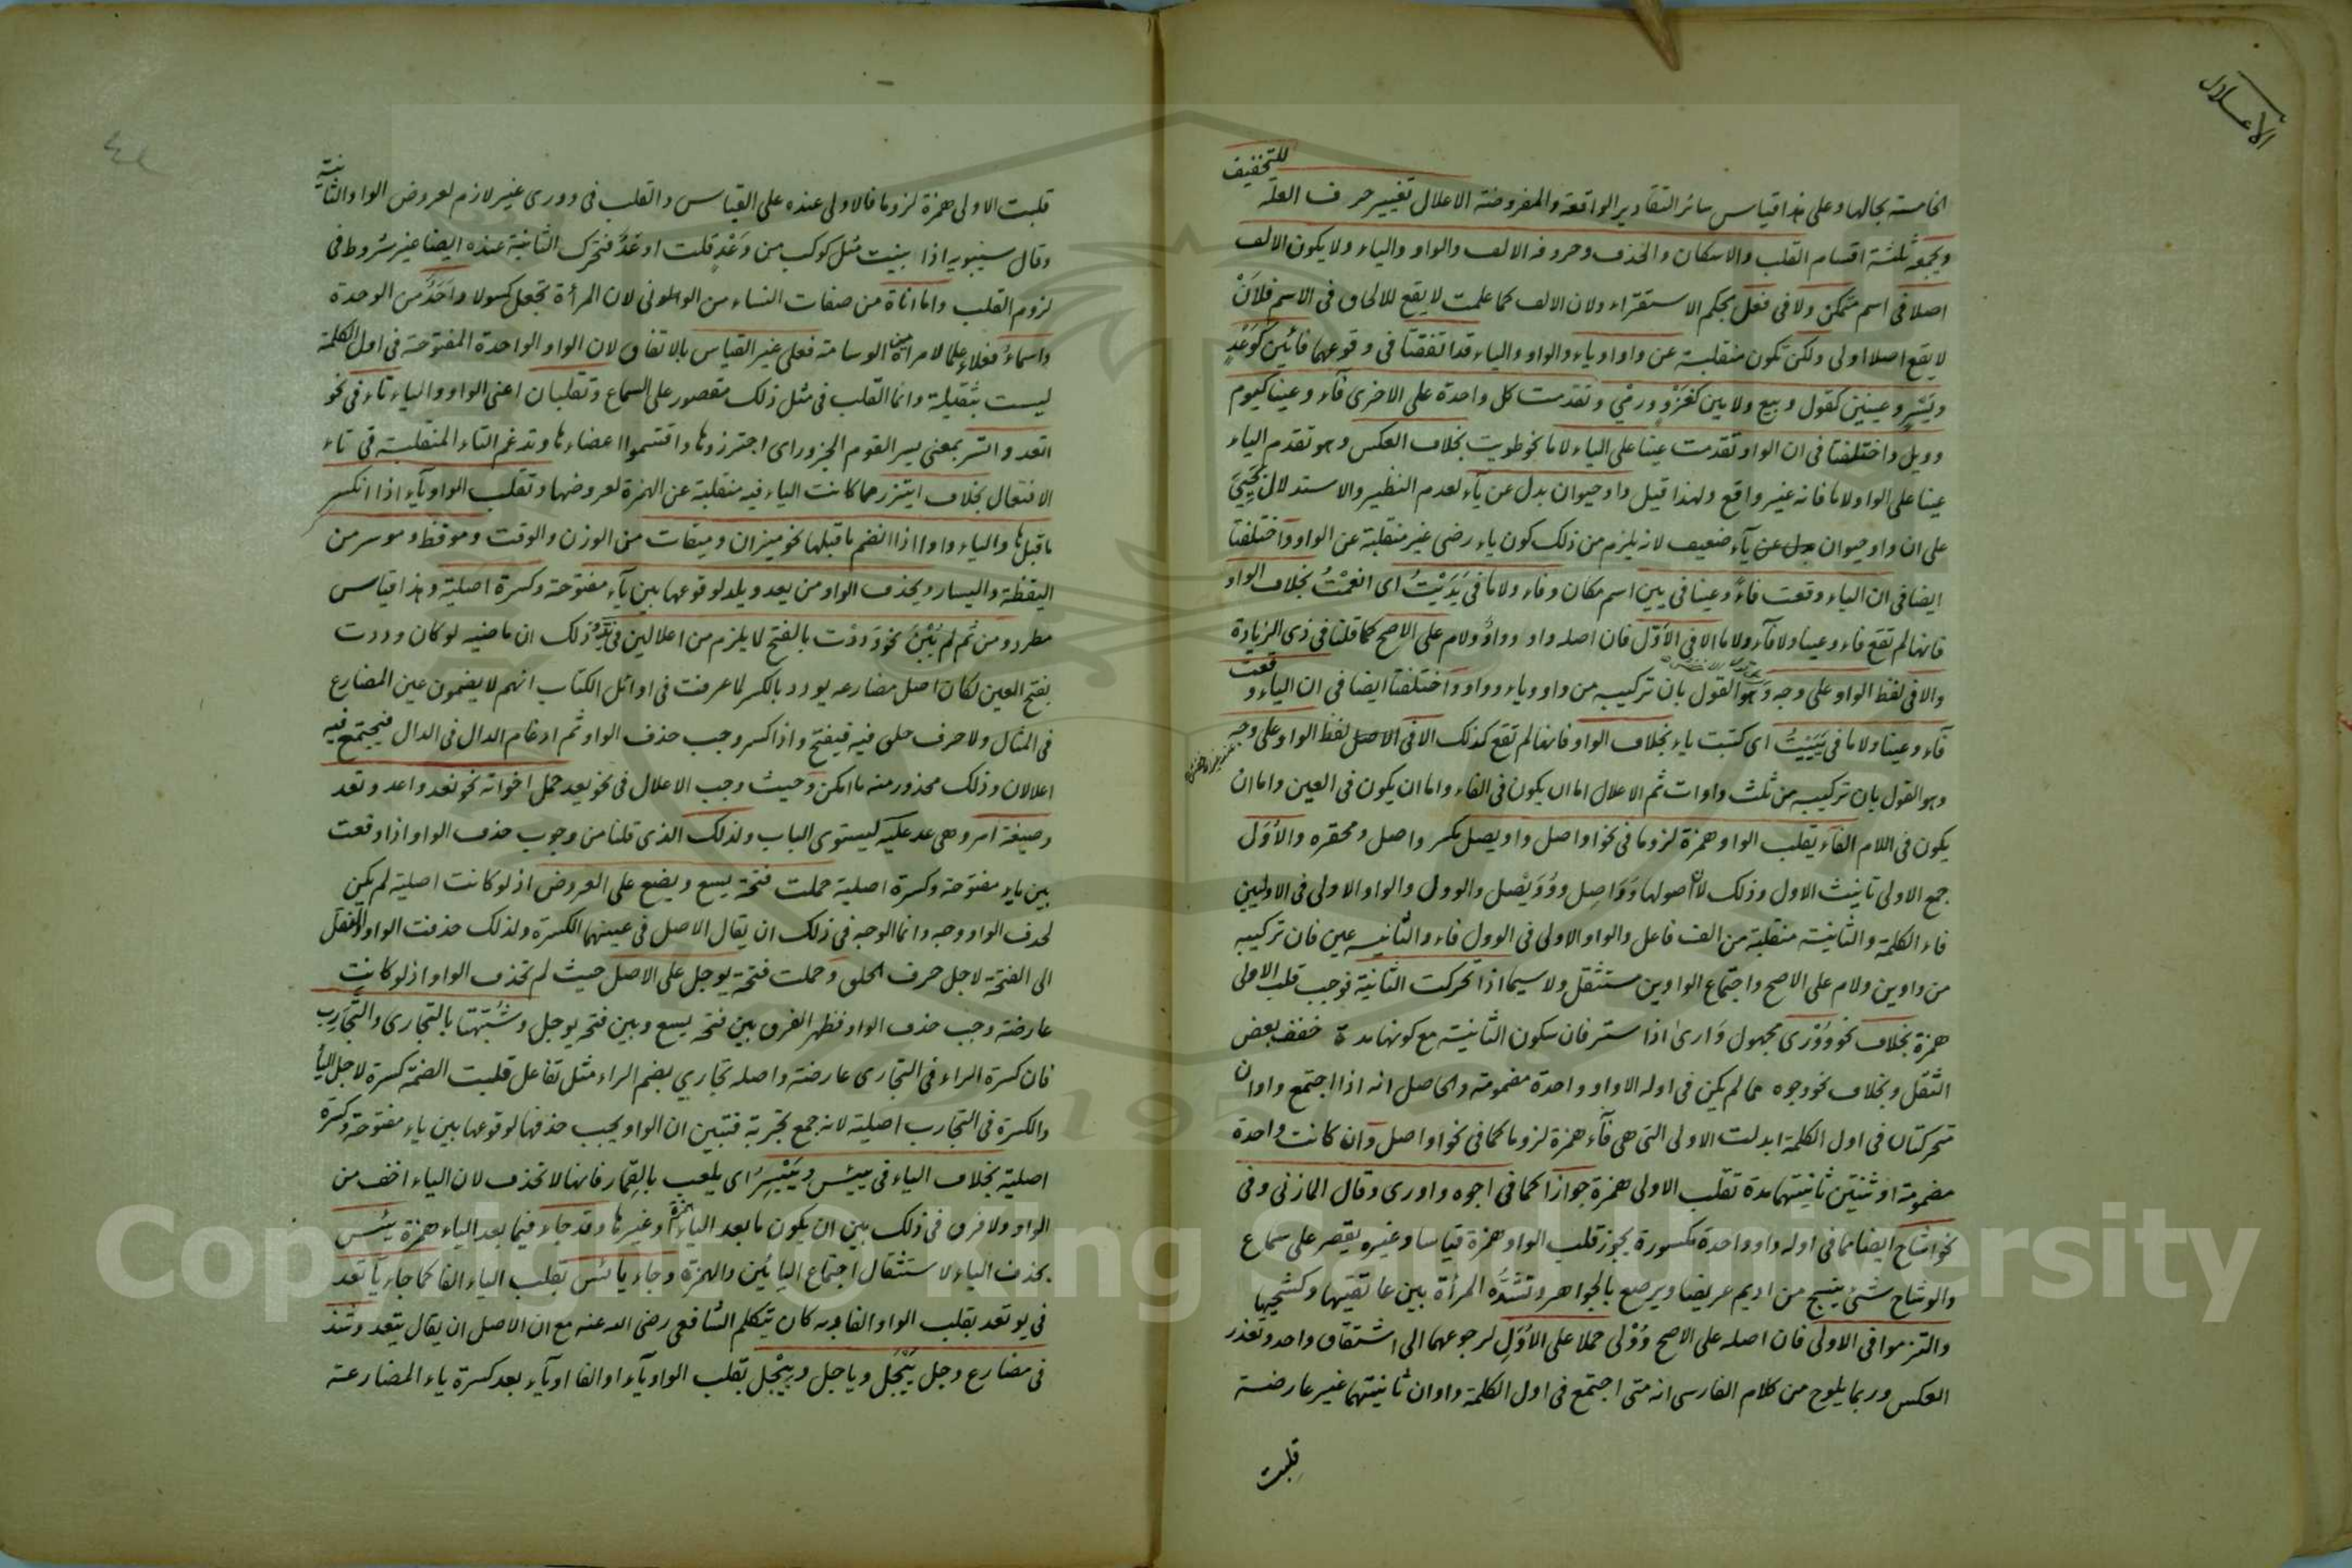 الاعلال
للتخفيف
الخامسة بحالها وعلى هذا قياس سائر التقادير الواقعة والمفروضة الاعلال تغيير حرف العلة
ويجمعه ثلثة اقسام القلب والاسكان والحذف وحروفه الالف والواو والياء ولا يكون الالف
اصلا فى اسم متمكن ولا فى فعل بحكم الاستقراء ولان الالف كما علمت لا يقع للالحاق فى الاسم فلان
لا يقع اصلا اولى ولكن تكون منقلبة عن واو او ياء والواو والياء قد اتفقتا فى وقوعهما فائين كوَعْدٍ
ويَسْرٍ وعينين كقول وبيع ولامين كغَزْوٍ ورمْي وتقدمت كل واحدة على الاخرى فآء وعينا كيوم
وويل واختلفتا فى ان الواو تقدمت عينا على الياء لاما نحو طويت بخلاف العكس وهو تقدم الياء
عينا على الواو لاما فانه غير واقع ولهذا قيل واو حيوان بدل عن يآء لعدم النظير والاستدلال بحَيِيَ
على ان واو حيوان بدل عن يآء ضعيف لانه يلزم من ذلك كون ياء رضى غير منقلبة عن الواو واختلفتا
ايضا فى ان الياء وقعت فاءً وعينا فى يين اسم مكان وفاء ولاما فى يَدَيْتُ اى انعمْتُ بخلاف الواو
فانها لم تقع فاء وعينا ولا فآء ولاما الا فى الاَوّل فان اصله واو وواوٌ ولام على الاصح كما قلنا فى ذى الزيادة
والا فى لفظ الواو على وجه وهو القول بان تركيبه من واو وياء وواو واختلفتا ايضا فى ان الياء وقعت
فآء وعينا ولاما فى يَيَّيْتُ اى كتبت ياء بخلاف الواو فانها لم تقع كذلك الا فى الاصل لفظ الواو على وجه
وهو القول بان تركيبه من ثلث واوات ثم الاعلال اما ان يكون فى الفاء واما ان يكون فى العين واما ان
يكون فى اللام الفآء يقلب الواو همزة لزوما فى نحو اواصل واويصل مكسر واصل ومحقره والاُوَل
جمع الاولى تانيث الاول وذلك لان اصولها وَوَاصِل ووُوَيْصل والوول والواو الاولى فى الاوليين
فاء الكلمة والثانية منقلبة من الف فاعل والواو الاولى فى الوول فاء والثانيه عين فان تركيبه
من واوين ولام على الاصح واجتماع الواوين مستثقل ولا سيما اذا تحركت الثانية فوجب قلب الاولى
همزة بخلاف نحو وُوْرى مجهول وَارىٰ اذا ستر فان سكون الثانية مع كونها مدة خفف بعض
الثقل وبخلاف نحو وجوه مما لم يكن فى اوله الا واو واحدة مضمومة والحاصل انه اذا اجتمع واوان
متحركتان فى اول الكلمة ابدلت الاولى التى هى فآء همزة لزوما كما فى نحو اواصل وان كانت واحدة
مضمومة او ثنتين ثانيتهما مدة تقلب الاولى همزة جوازا كما فى اجوه واورى وقال المازنى وفى
نحو اشاح ايضا مما فى اوله واو واحدة مكسورة يجوز قلب الواو همزة قياسا وغيره يقصر على سماع
والوشاح شئ ينسج من اديم عريضا ويرصع بالجواهر وتشُدُّه المرأة بين عاتقيها وكشحيها
والتزموا فى الاولى فان اصله على الاصح وُوْلى حملا على الاُوَلِ لرجوعهما الى اشتقاق واحد وتعذر
العكس وربما يلوح من كلام الفارسى انه متى اجتمع فى اول الكلمة واوان ثانيتهما غير عارضة
قلبت
قلبت الاولى همزة لزوما فالاولى عنده على القياس والقلب فى وورى غير لازم لعروض الواو الثانية
وقال سيبويه اذا بنيت مثل كوكب من وَعْدٍ قلت اوعَدٌ فتحرك الثانية عنده ايضا غير شروط فى
لزوم القلب واما اناة من صفات النساء من الونى لان المرأة تجعل كسولا واَحَدٌ من الوحدة
واسماءُ فعلاء علما لامرأة من الوسامة فعلى غير القياس بالاتفاق لان الواو الواحدة المفتوحة فى اول الكلمة
ليست بثقيلة وانما القلب فى مثل ذلك مقصور على السماع وتقلبان اعنى الواو والياء تاء فى نحو
اتعد واتسر بمعنى يسر القوم الجزور اى اجتزروها واقتسموا اعضاءها وتدغم التاء المنقلبة فى تاء
الافتعال بخلاف ايتزر مما كانت الياء فيه منقلبة عن الهمزة لعروضها وتقلب الواو يآء اذا انكسر
ما قبلها والياء واوا اذا انضم ما قبلها نحو ميزان وميقات من الوزن والوقت وموقظ وموسر من
اليقظة واليسار ويحذف الواو من يعد ويلد لوقوعها بين يآء مفتوحة وكسرة اصلية وهذا قياس
مطرد ومن ثم لم يُبْنَ نحو وَددْت بالفتح لا يلزم من اعلالين فى يَدُّ وذلك ان ماضيه لو كان وددت
بفتح العين لكان اصل مضارعه يودد بالكسر لما عرفت فى اوائل الكتاب انهم لا يضمون عين المضارع
فى المثال ولا حرف حلق فيه فيفتح واذا كسر وجب حذف الواو ثم ادغام الدال فى الدال فيجتمع فيه
اعلالان وذلك محذور منه ما امكن وحيث وجب الاعلال فى نحو يعد حمل اخواته نحو نعد واعد وتعد
وصيغة امره هى عد عليه ليستوى الباب ولذلك الذى قلنا من وجوب حذف الواو اذا وقعت
بين ياء مفتوحة وكسرة اصلية حملت فتحة يسع ويضع على العروض اذ لو كانت اصلية لم يكن
لحذف الواو وجه وانما الوجه فى ذلك ان يقال الاصل فى عينهما الكسرة ولذلك حذفت الواو
الى الفتحة لاجل حرف الحلق وحملت فتحة يوجل على الاصل حيث لم تحذف الواو اذ لو كانت
عارضة وجب حذف الواو فظهر الفرق بين فتحة يسع وبين فتحة يوجل وشُبّهتا بالتجارى والتجَارِب
فان كسرة الراء فى التجارى عارضة واصله تجارى بضم الراء مثل تفاعل قلبت الضمة كسرة لاجل اليأ
والكسرة فى التجارب اصلية لانه جمع تجربة فتبين ان الواو يجب حذفها لوقوعها بين ياء مفتوحة وكسرة
اصلية بخلاف الياء فى ييئس ويَيْسِرُ اى يلعب بالقِمار فانها لا تحذف لان الياء اخف من
الواو ولا فرق فى ذلك بين ان يكون ما بعد الياء همزة او غيرها وقد جاء فيما بعد الياء همزة يئس
بحذف الياء لاستثقال اجتماع اليائين والهمزة وجاء يائس بقلب الياء الفا كما جاء ياتعد
فى يوتعد بقلب الواو الفا وبه كان يتكلم الشافعى رضى الله عنه مع ان الاصل ان يقال يتعد وشذ
فى مضارع وجل يَيْجَل وياجل ويِيْجل بقلب الواو يآء او الفا او يآء بعد كسرة ياء المضارعة